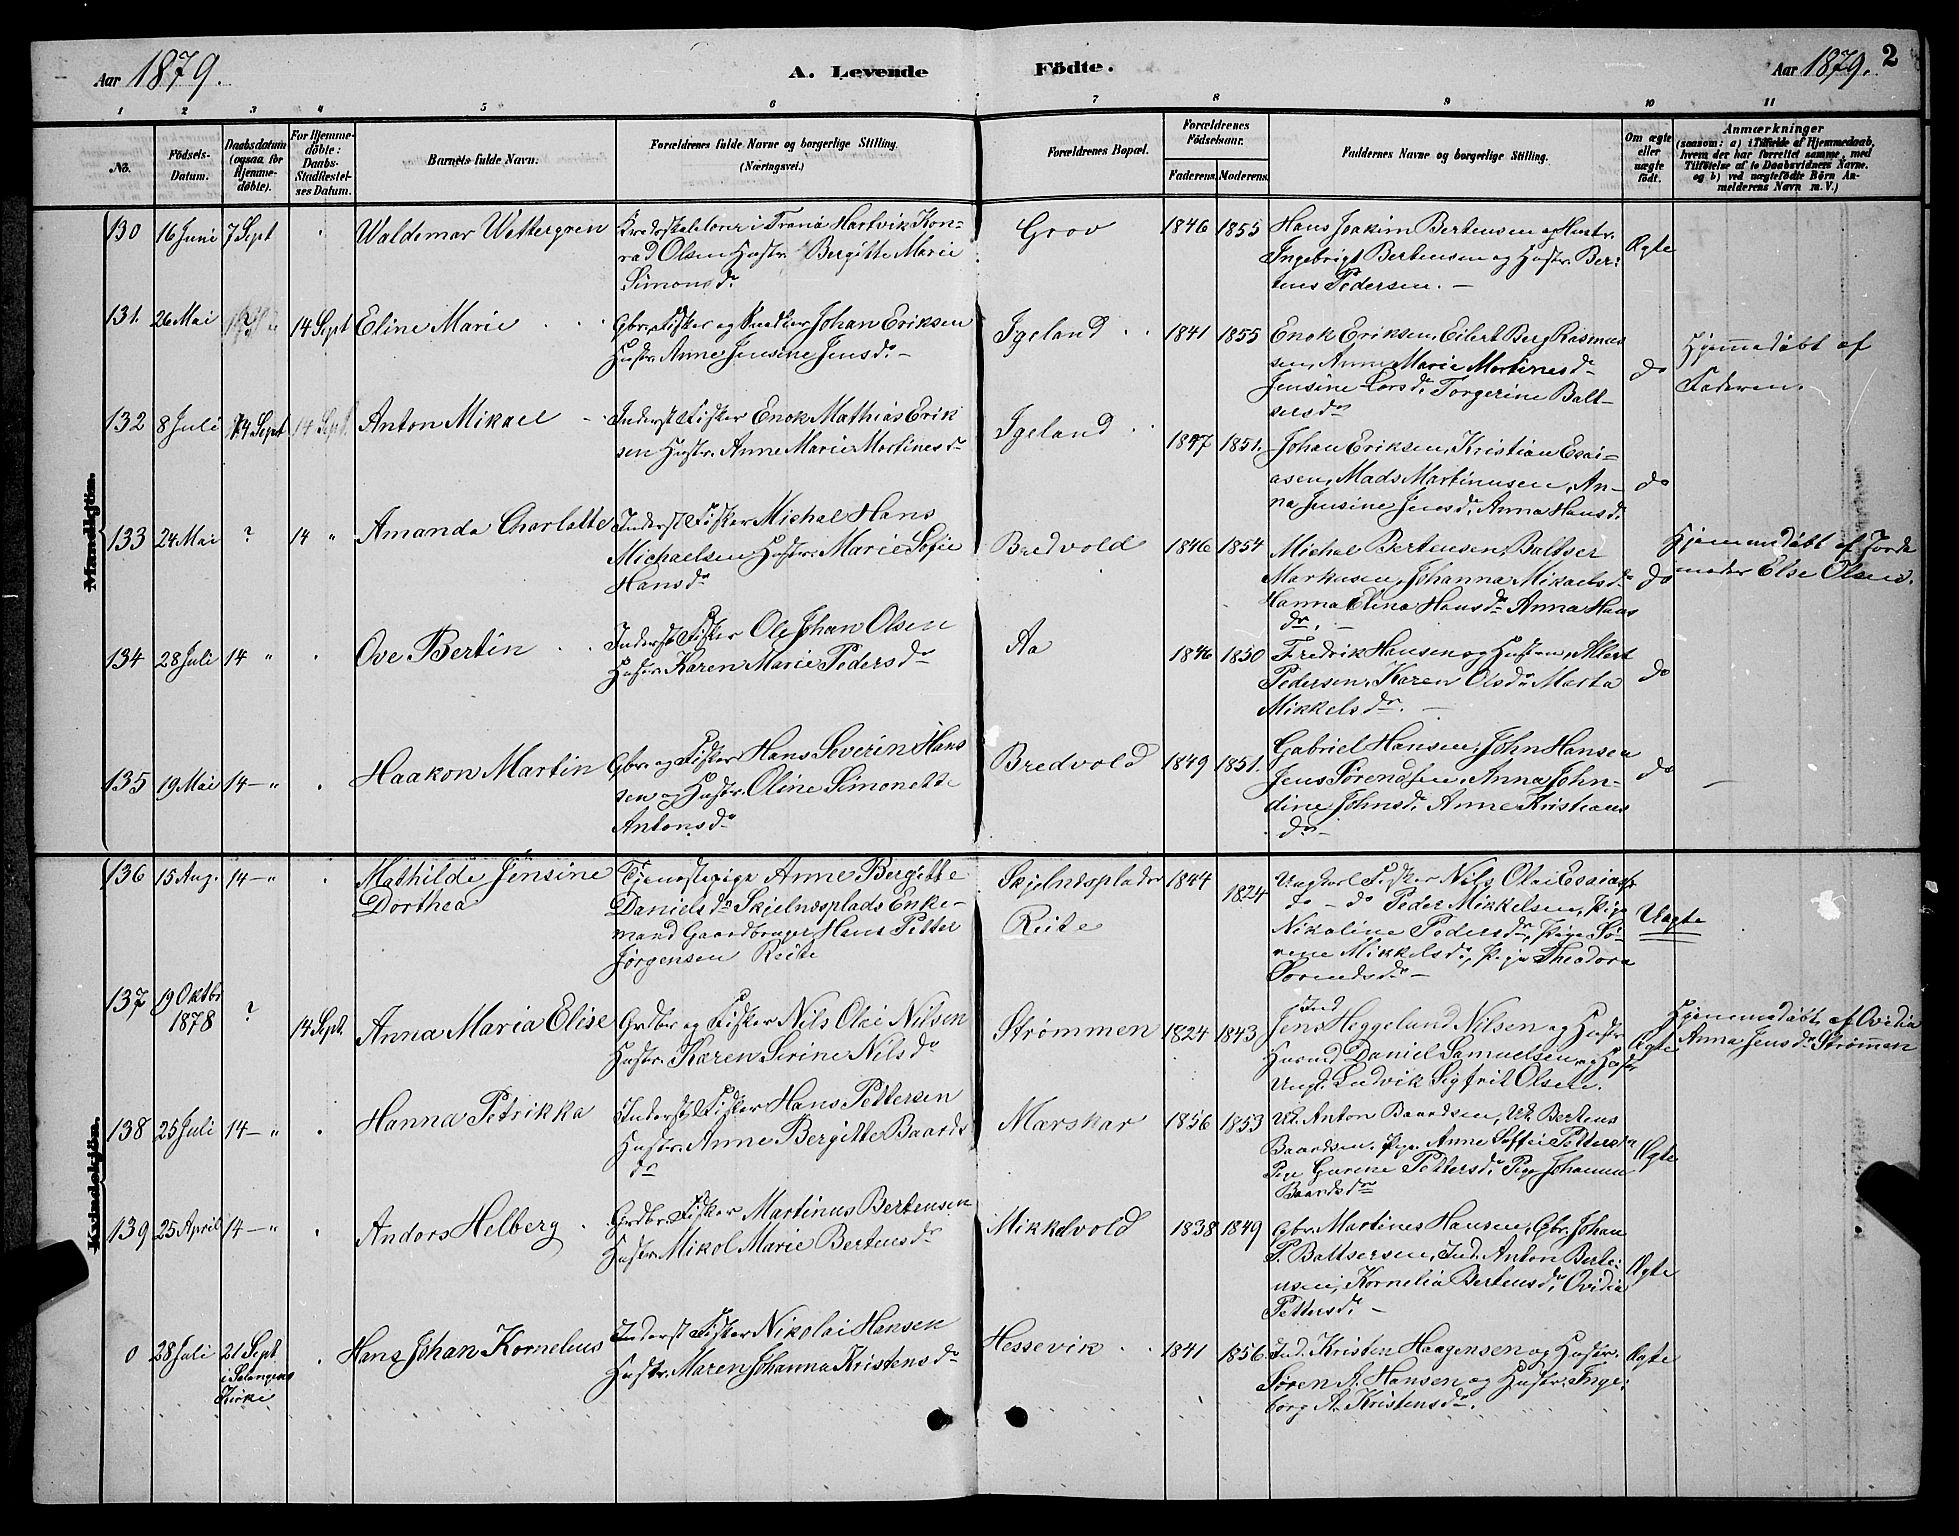 Aar 1879.
A. Levende Födte.
Aar 1879. 2
1 2 3 4 5 6 7 8 9 10 11
No.
Födsels-Datum.
Daabsdatum (ogsaa for Hjemmedöbte).
For Hjemmedöbte: Daabs-Stadfæstelses Datum.
Barnets fulde Navn.
Forældrenes fulde Navne og borgerlige Stilling. (Næringsvei.)
Forældrenes Bopæl.
Forældrenes Födselsaar.
Faderens. Moderens.
Faddernes Navne og borgerlige Stilling.
Om ægte eller uægte födt.
Anmærkninger
(saasom: a) i Tilfælde af Hjemmedaab, hvem der har forrettet samme, med Tilföielse af to Daabsvidners Navne. og b) ved uægtefödte Börn Anmelderens Navn m. V.)
Mandkjön.
130 16 Juni 7 Sept Waldemar Wettergren
i Tranø Hartvik Konrad Olsen Hustr. Bergitte Marie Simonsdr
Grov 1846 1855
Hans Joakim Bertensen og Hustr.
Ingebrigt Bertensen og Hustr. Bertens Pedersen. —
Ægte
131. 26 Mai 14 Sept Eline Marie
Gbr. Fisker og Snedker Johan Eriksen
Hustr. Anne Jensine Jensdr —
Igeland 1841 1855
Enok Eriksen, Eilert Berg Rasmussen, Anne Marie Martinesdr
Jensine Larsdr, Torgerine Baltsersdr
do
Hjemmedøbt af Faderen.
132 8 Juli 14 Sept 14 Sept. Anton Mikael
Inderst Fisker Enok Mathias Eriksen Hustr. Anne Marie Martinesdr
Igeland 1847 1851.
Johan Eriksen, Kristian Esaiasen, Mads Martinusen, Anna Jensine Jensdr, Anna Hansdr
do
133 24 Mai ? 14 " Amanda Charlotte
Inderst Fisker Michal Hans Michaelsen Hustr. Marie Sofie Hansdr
Bredvold 1846 1854
Michal Bertensen, Baltser Markusen, Johanna Mikaelsdr
Hanna Elina Hansdr Anna Hansdr. —
do
Hjemmedøbt af Jordemoder Else Olsen.
134 28 Juli 14 " Ove Bertin
Inderst Fisker Ole Johan Olsen
Hustr. Karen Marie Pedersdr
Aa 1846 1850
Fredrik Hansen og Hustru, Albert Pedersen, Karen Olsdr Marta Mikkelsdr. —
do
135 19 Mai 14 — " Haakon Martin
Gbr. og Fisker Hans Severin Hansen og Hustr. Oline Simonette Antonsdr
Bredvold 1849 1851.
Gabriel Hansen, John Hansen
Jens Sørendsen, Anna Johndine Johnsdr, Anne Kristiansdr —
do —
136 15 Aug. 14 — " Mathilde Jensine Dorthea
Tjenestepige Anne Bergitte Danielsdr Skjelnesplads Enkemand Gaardbruger Hans Petter Jørgensen Reite
Reite 1844 1824
Ungkarl Fisker Nils Olai Esaiasen
do — do Peder Mikkelsen, Pige Nikoline Pedersdr, Pige Sørene Mikkelsdr, Pige Theodora Sorendsdr —
Uægte
Kvindekjön.
137 19 Oktbr 1878 ? 14 Sept. Anna Maria Elise
Grdbr og Fisker Nils Olai Nilsen
Hustr. Karen Serine Nilsdr
Strømmen 1824 1843
Ind Jens Heggelund Nilsen og Hustr.
Husmd. Daniel Samuelsen og Hustr
Ungk. Ludvik Sigfrit Olsen.
Ægte
Hjemmedøbt af Ovidia Anna Jensdr Strømmen
138 25 Juli 14 — " Hanna Petrikka
Inderst Fisker Hans Pettersen
Hustr. Anne Bergitte Baardsdr
Marskar 1856 1853
Uk. Anton Baardsen, Uk. Bertens Baardsen, Pige Anne Soffie Pettersdr
Pige Gurene Pettersdr, Pige Johanna Baardsdr
Ægte
139 25 April 14 — " Anders Helberg
Grdbr. Fisker Martinus Bertensen
Hustr. Mikol Marie Bertensdr
Mikkelvold 1838 1849
Gbr. Martines Hansen, Gbr. Johan P. Baltsersen, Ind. Anton Bertensen, Kornelia Bertensdr, Ovidia Pettersdr —
Ægte
0 28 Juli 21 Sept i Salangens Kirke Hans Johan Kornelius
Inderst Fisker Nikolai Hansen
Hustr. Maren Johanna Kristensdr
Hessevik 1841 1856
Ind. Kristen Haagensen og Hustr.
Søren A. Hansen og Hustr. Ingeborg A. Kristensdr.
Ægte